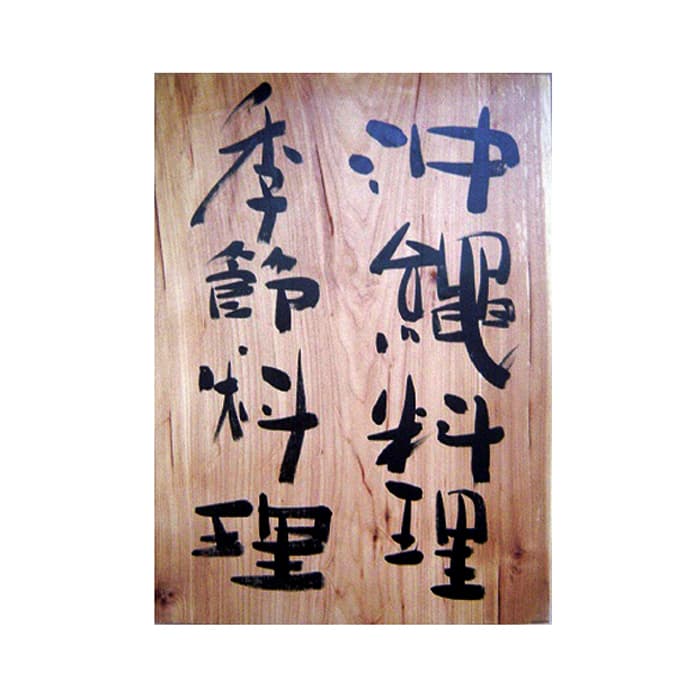 沖縄料理
季節料理